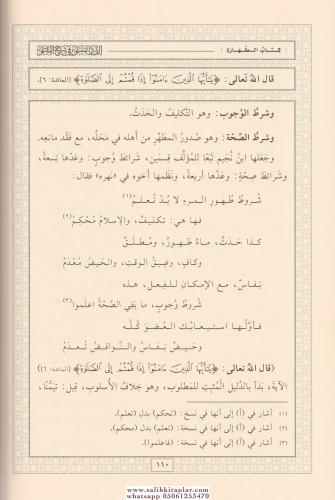 كتاب الطهارة
قال اللهُ تعالى: ﴿يَٰٓأَيُّهَا ٱلَّذِينَ ءَامَنُوٓاْ إِذَا قُمۡتُمۡ إِلَى ٱلصَّلَوٰةِ﴾ [المائدة: ٦].
وشرطُ الوُجوب: وهو التّكليفُ والحَدَثُ.
وشرطُ الصّحّة: وهو صُدورُ المطهِّرِ من أهله في مَحلِّه، مع فَقد مانعِه.
وجَعلها ابنُ نُجيم تَبَعًا للمؤلِّف قِسمَين، شَرائطَ وُجوبٍ: وعَدّها تِسعةً،
وشَرائطَ صِحّةٍ: وعَدّها أربعةً، ونَظَمها أخوه في «نَهره» فقال:
شُروطُ طُهورِ المرءِ لا بُدَّ تُعلَمُ(١)
فها هي: تكليفٌ، والاسلامُ مُحكَمُ(٢)
كذا حَدَثٌ، ماءٌ طَهورٌ، ومُطلَقٌ
وكافٍ، وضِيقُ الوقتِ، والحَيضُ مُعدَمُ
نِفاسٌ، مع الإمكانِ للفِعل، هذه
شُروطُ وُجوبٍ، ما بَقي الصّحّةُ اعلَموا(٣)
فأوّلُها استيعابُك العُضوَ كُلَّه
وحَيضٌ نِفاسٌ والنَّواقضُ تُعدَمُ
(قال اللهُ تعالى: ﴿يَٰٓأَيُّهَا ٱلَّذِينَ ءَامَنُوٓاْ إِذَا قُمۡتُمۡ إِلَى ٱلصَّلَوٰةِ﴾ [المائدة: ٦])
الآيةَ، بَدَأ بالدَّليل المُثبِتِ للمَطلوب، وهو خِلافُ الأُسلوبِ، قيل: تيمُّنًا،
(١) أشار في (أ) إلى أنها في نسخ: (تحكم) بدل (تعلم).
(٢) أشار في (أ) إلى أنها في نسخة: (تعلم) بدل (محكم).
(٣) أشار في (أ) إلى أنها في نسخة: (فاعلموا).
١١٠
www.salihkitaplar.com
whatsapp 05061253470